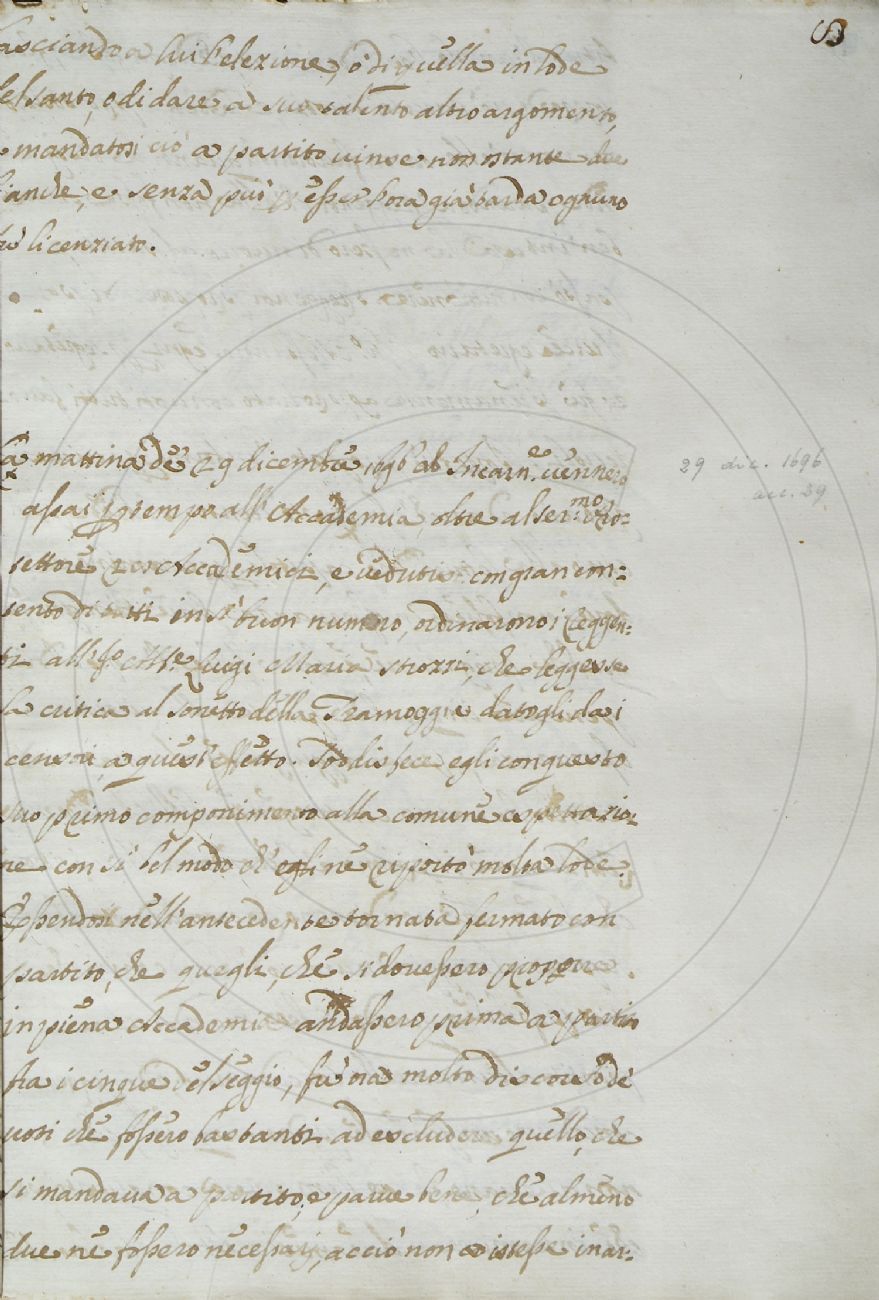 8
lasciando a lui l'elezione, o di quella in lode
del santo, o di dare a suo talento altro argomento,
e mandatosi ciò a partito vinse non ostante due
bianche, e senza più p esser l'ora già tarda ognuno
fù licenziato.
La mattina de' 29 dicembre 1696 ab Incarn.ne vennero
assai p tempo all'Accademia, oltre al ser.mo Pro=
tettore 20 Accademici, e vedutisi con gran con=
tento di tutti in sì buon numero, ordinarono i Reggen=
ti all' Ill.mo Sig.re Luigi Maria Strozzi, che leggesse
la critica al sonetto della Tramoggia datogli dai
censori a quest'effetto. Soddisfece egli con questo
suo primo componimento alla comune espettazio=
ne con sì bel modo ch'egli ne riportò molta lode.
Essendosi nell'antecedente tornata fermato con
partito, che quegli, che si dovessero proporre
in piena Accademia andassero prima a partito
fra i cinque del seggio, fù ora molto discorso de'
voti che fossero bastanti ad escludere quello, che
si mandava a partito, e parve bene, che almeno
due ne fossero necessarj, acciò non ostasse in ar=
29 dic. 1696
acc. 29